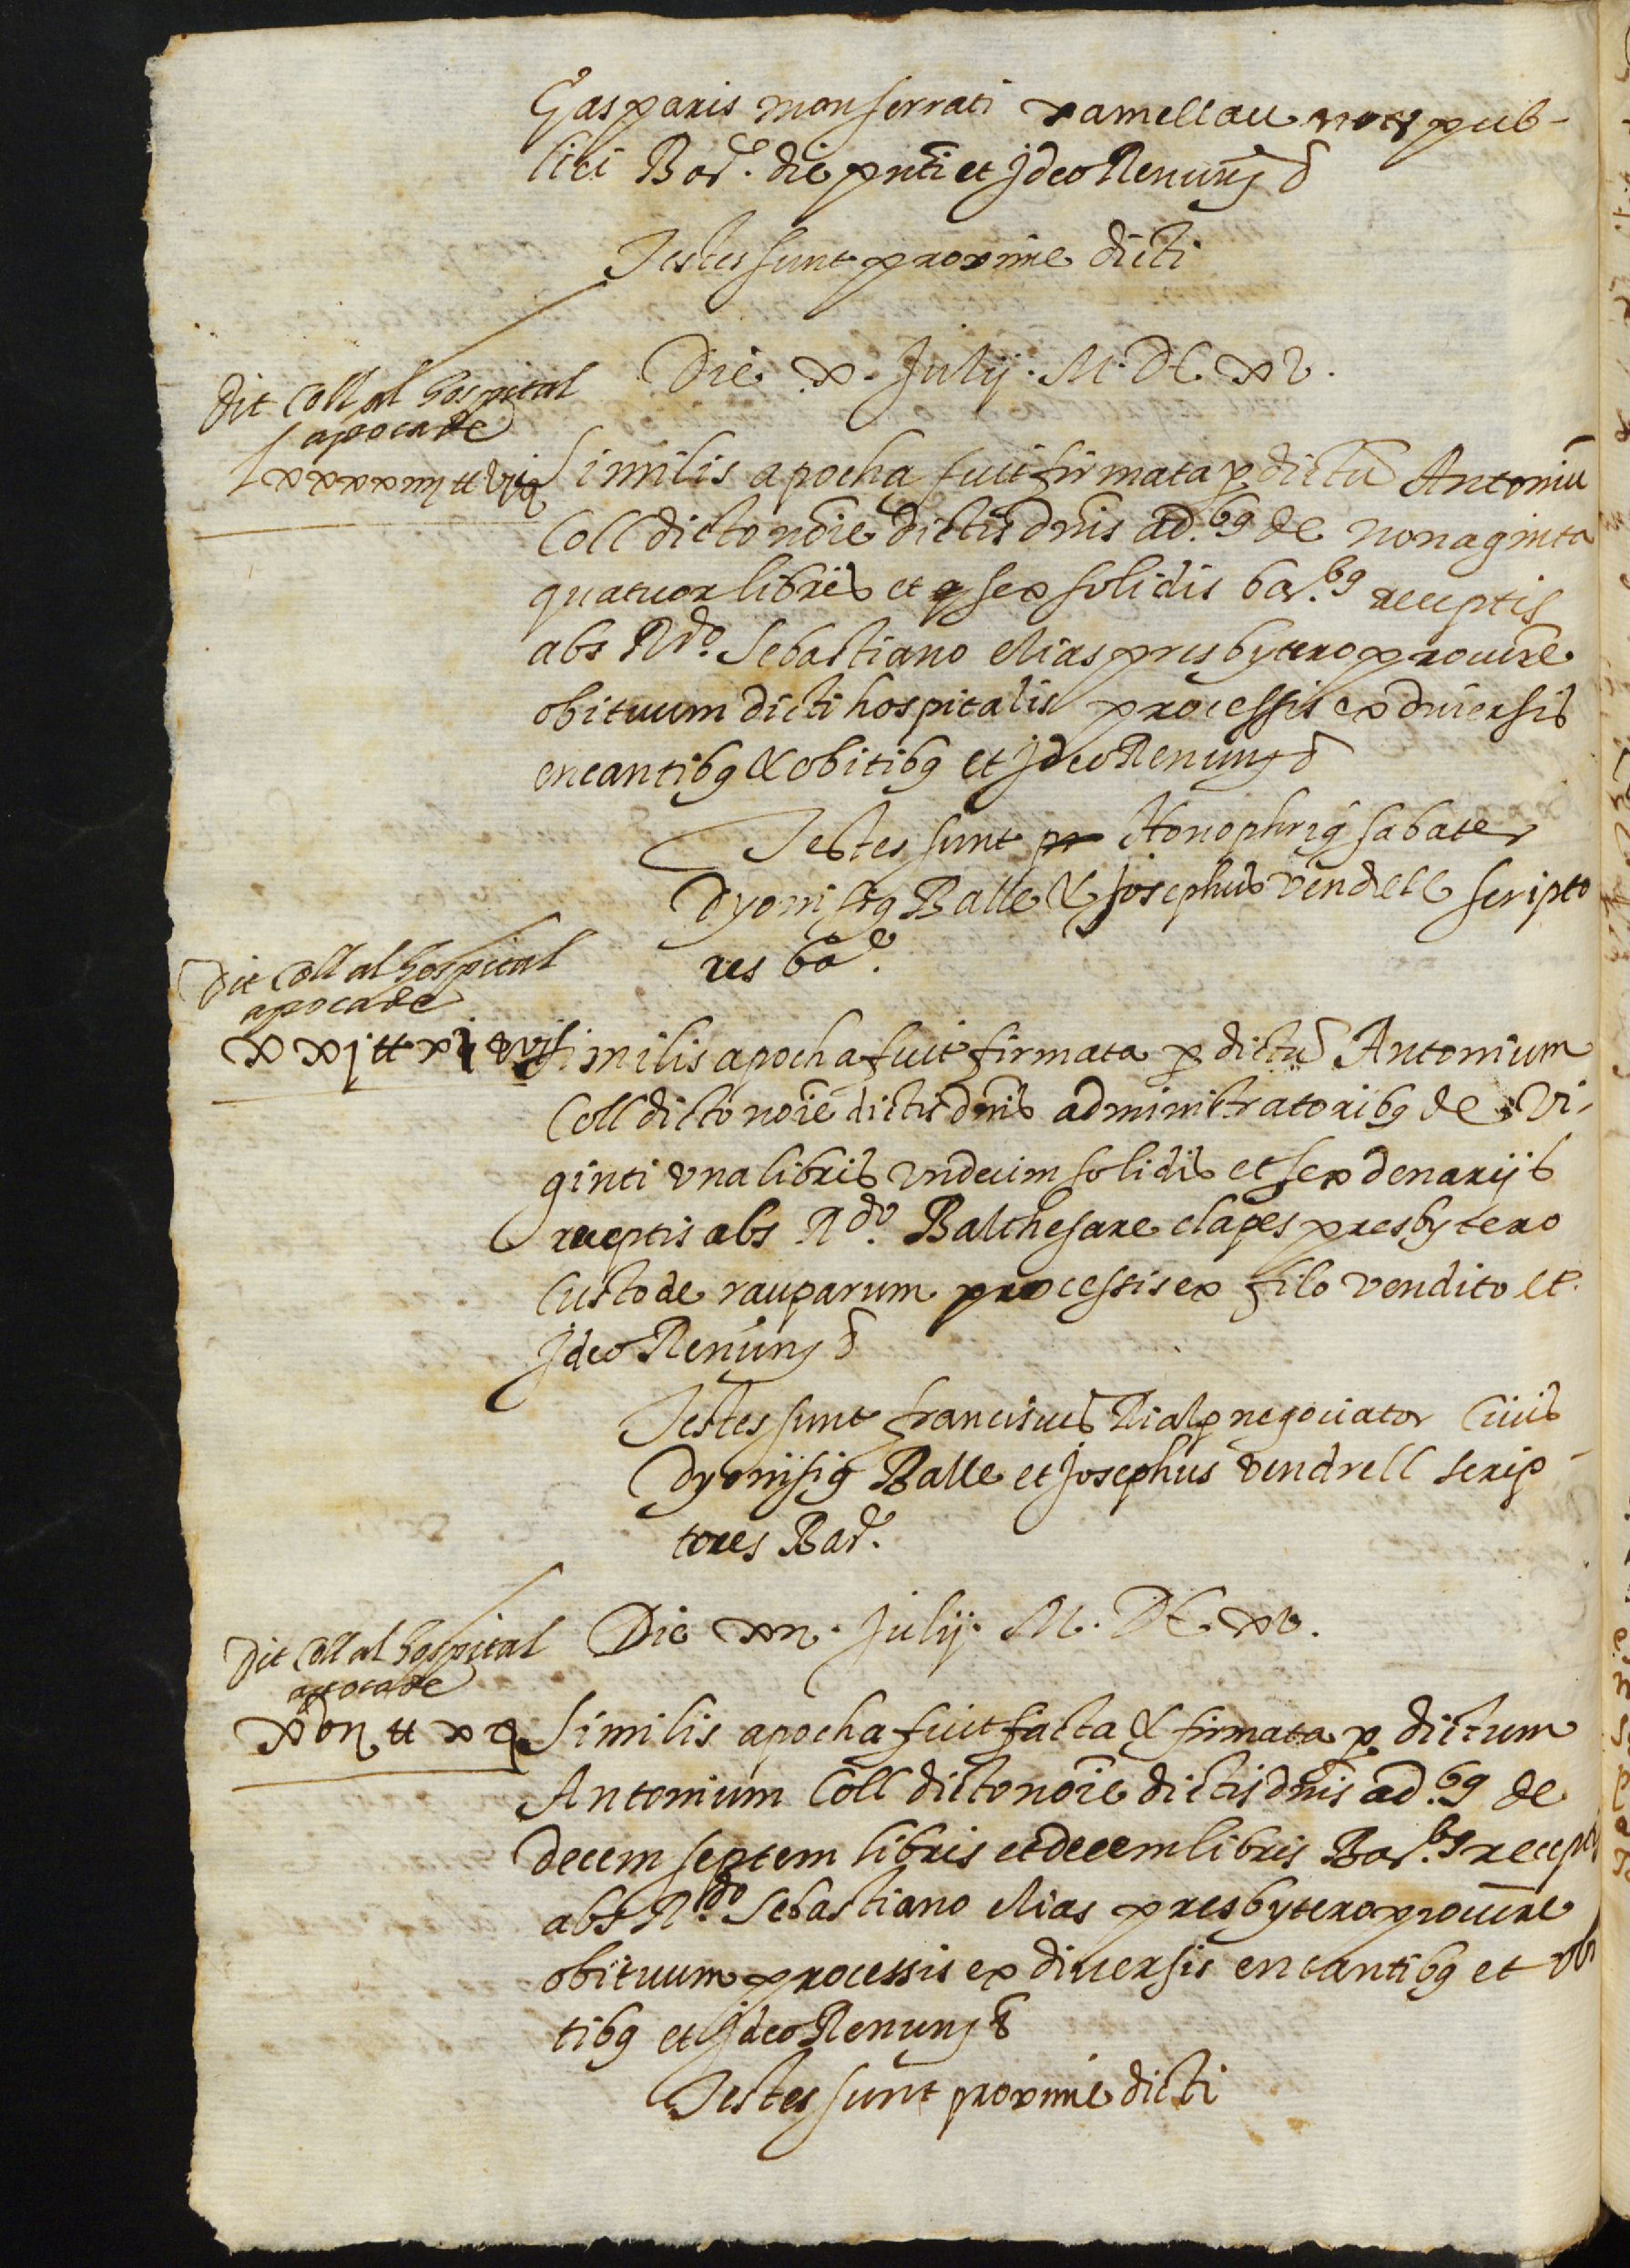 Gasparis monserrati xamellau noty pub-
lici Bar.e die pnti et Jdeo Renung &
Testes sunt proxime dicti
Die x. Julij. M. DC. xv.
Dit Coll al hospital
apoca de
Lxxxxiiij ₶ vi ß
Similis apocha fuit firmata p dictu Antoniu
Coll dicto noie dictis dnis ad.bq de nonaginta
quatuor libris et sex solidis bar.bq receptis
abs Rdo. Sebastiano elias presbytero procure
obituum dicti hospitalis processis ex diuersis
encantibq & obitibq et Jdeo Renung &
Testes sunt Honophriq sabater
Dyonisiq Balle & Josephus vendrell scripto
res ba.e
Dit Coll al hospital
apoca de
xxj ₶ xj ß vj
Similis apocha fuit firmata p dictu Antonium
Coll dicto noie dictis dnis administratoribq de vi-
ginti vna libris vndecim solidis et sex denarijs
receptis abs Rdo. Balthesare clapes presbytero
Custode rauparum processis ex filo vendito et
Jdeo Renung &
Testes sunt franciscus Rialp negociator Ciuis
Dyonisiq Balle et Josephus vendrell scrip-
tores Bar.e
Die xvii. Julij. M. DC. xv.
Dit Coll al hospital
apoca de
xvii ₶ x ß
Similis apocha fuit facta & firmata p dictum
Antonium Coll dicto noie dictis dnis ad.bq de
decem septem libris et decem libris Bar.bq recept
abs Rdo. Sebastiano elias presbytero procure
obituum processis ex diuersis encantibq et obi
tibq et Jdeo Renung &
Testes sunt proxime dicti